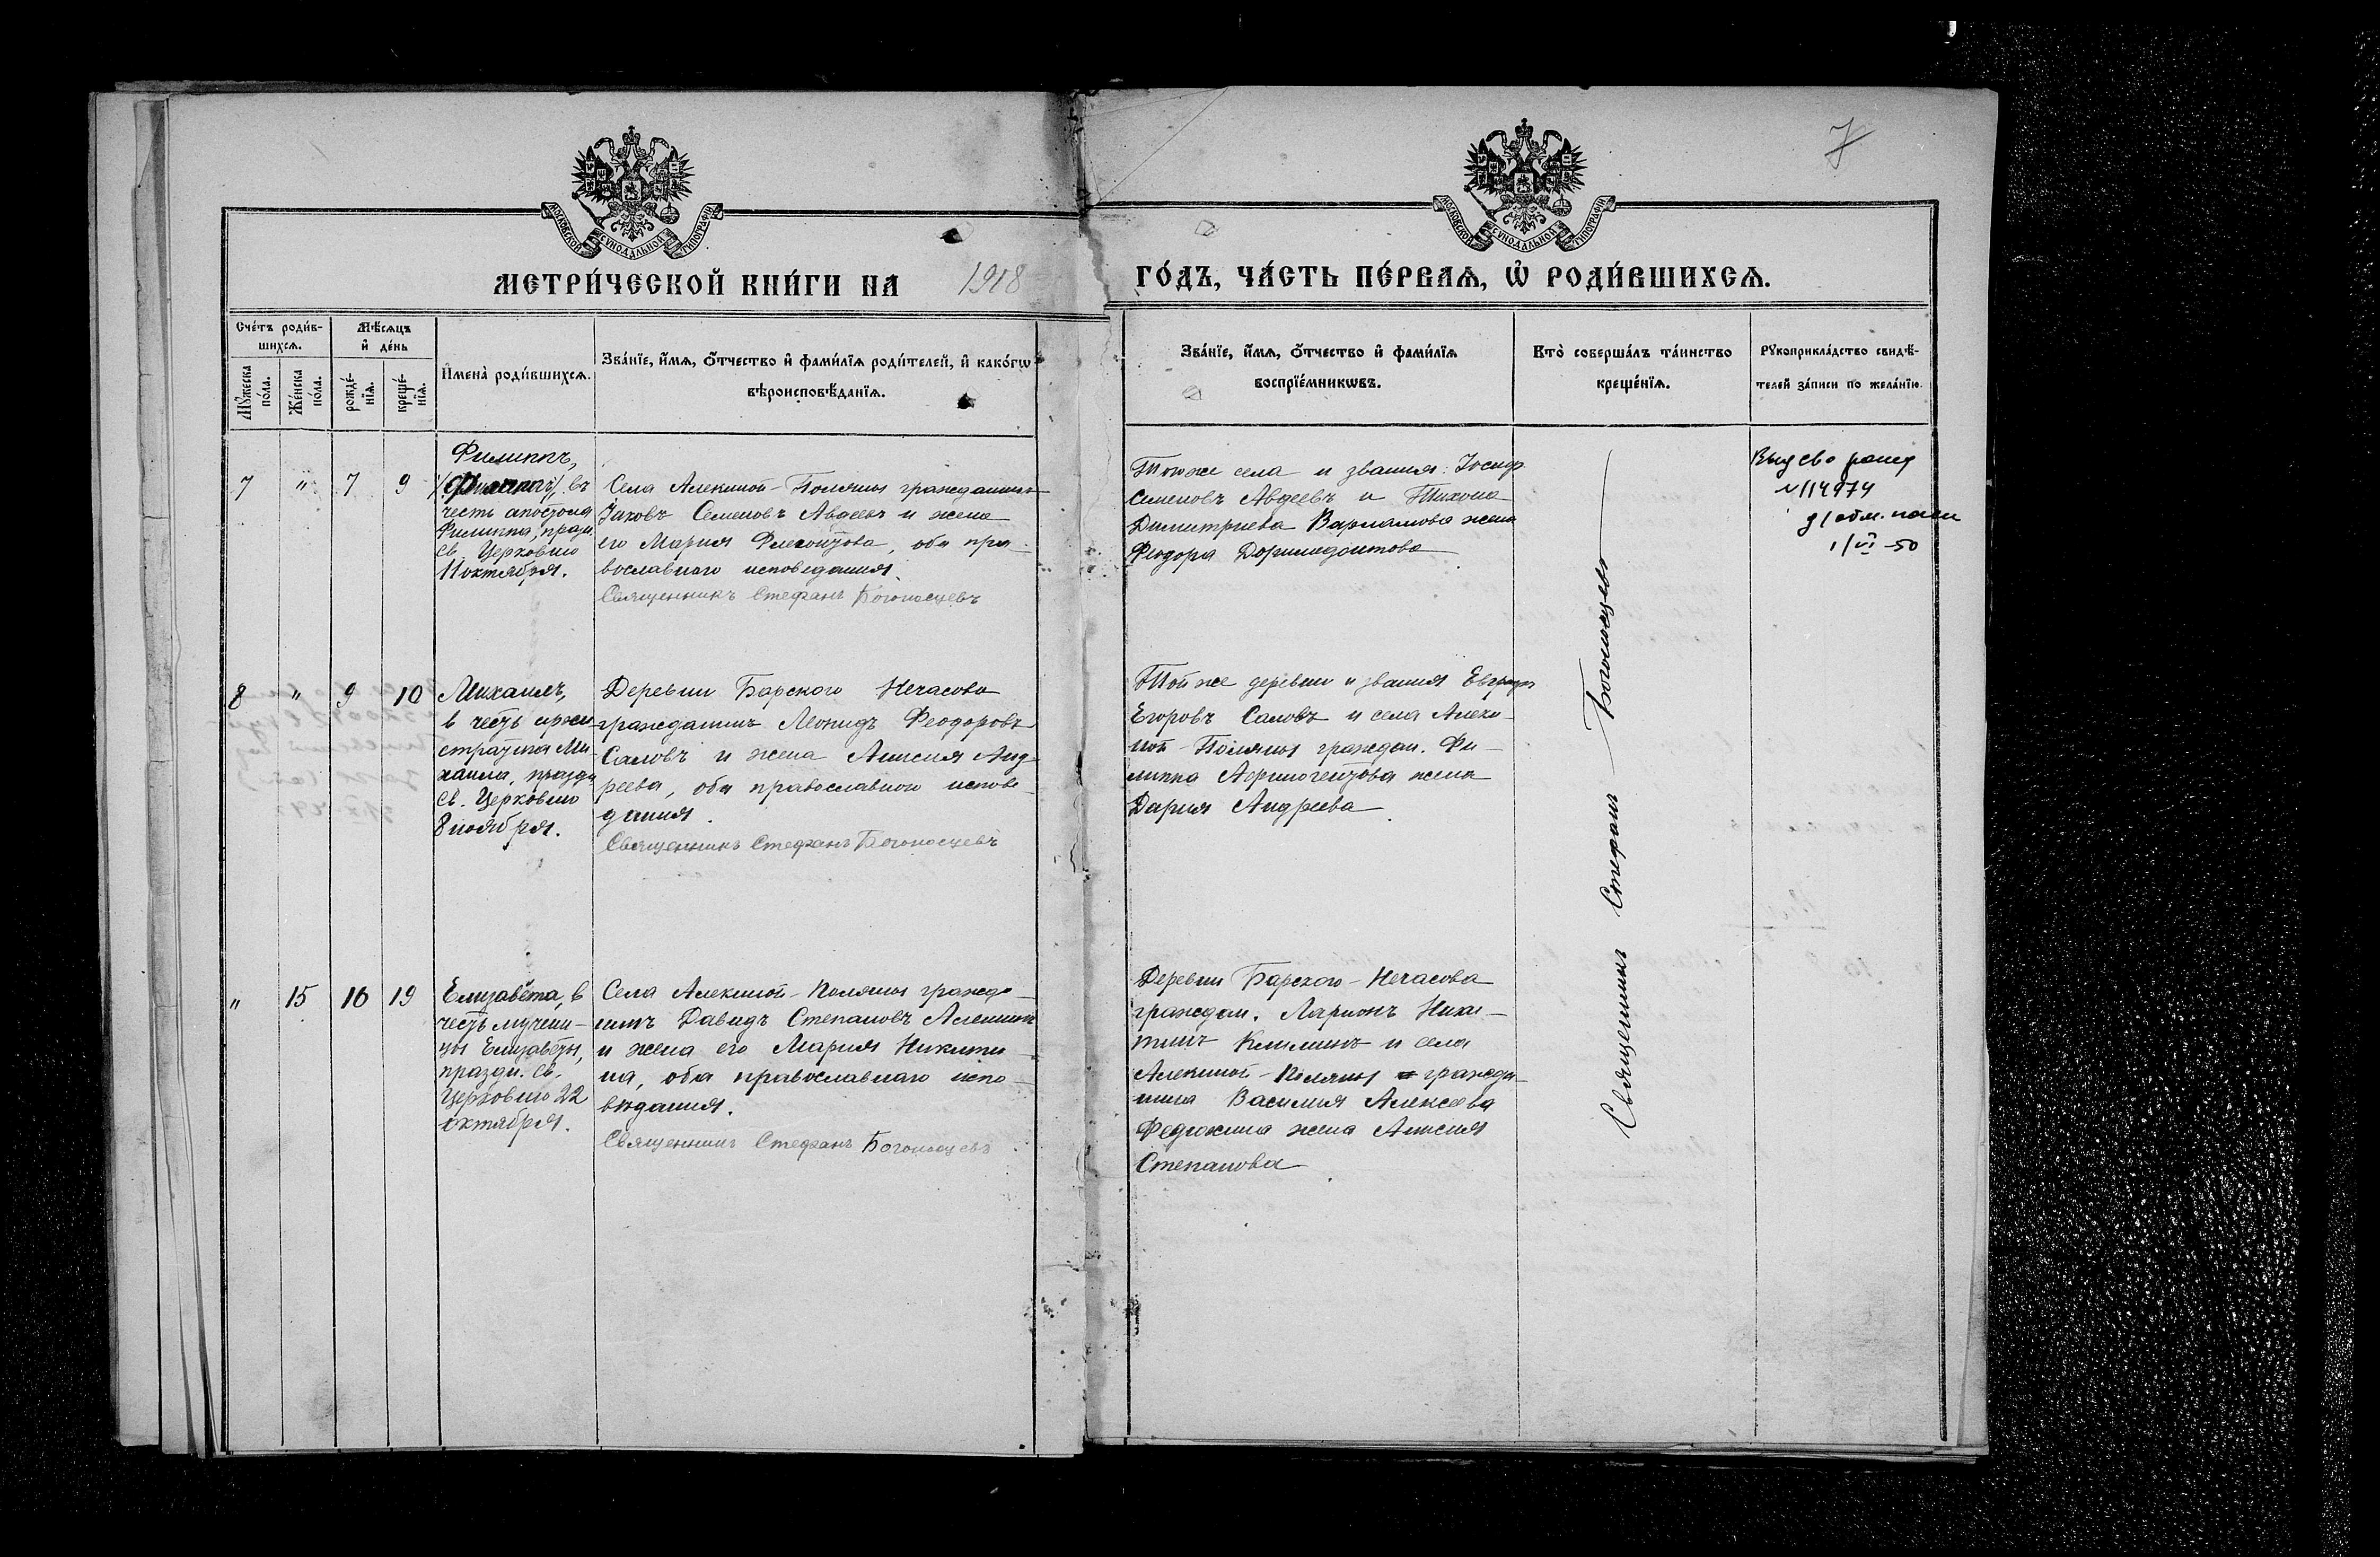 7
МОСКОВСКОЙ СѴНОДАЛЬНОЙ ТИПОГРАФІИ
МОСКОВСКОЙ СѴНОДАЛЬНОЙ ТИПОГРАФІИ
МЕТРИ́ЧЕСКОЙ КНИ́ГИ НА 1918 ГО́ДЪ, ЧА́СТЬ ПЕ́РВАѦ, Ѽ РОДИ́ВШИХСѦ.
Сче́тъ роди́в-
шихсѧ.
Мѣ́сѧцъ
и҆ де́нь
Мꙋ́жеска
по́ла.
Же́нска
по́ла.
рожде́-
нїѧ.
креще́-
нїѧ.
И҆мена̀ роди́вшихсѧ.
Зва́нїе, и҆́мѧ, ѻ҆́тчество и҆ фами́лїѧ роди́телей, и҆ како́гѡ
вѣроисповѣ́данїѧ.
Зва́нїе, и҆́мѧ, ѻ҆́тчество и҆ фами́лїѧ
воспрїе́мникѡвъ.
Кто̀ соверша́лъ та́инство
креще́нїѧ.
Рꙋкоприкла́дство свидѣ́-
телей за́писи по жела́нїю.
7 " 7 9
Филиппъ,
(Филиппъ), въ
честь апостола
Филиппа, празд.
св. Церковью
11 октября.
Села Алекиной-Поляны гражданинъ
Іаковъ Семеновъ Авдеевъ и жена
его Мария Флегонтова, оба пра-
вославного исповедания.
Священникъ Стефанъ Богоносцевъ
Того же села и звания: Іосиф
Семеновъ Авдеевъ и Тихона
Димитриева Варламова жена
Феодора Доримедонтова
Выд сво
№114974
1/VI-50
8 " 9 10
Михаилъ,
в честь архи-
стратига Ми-
хаила, праздн.
св. Церковью
8 ноября.
Деревни Барского Нечасова
гражданинъ Леонидъ Феодоровъ
Саловъ и жена Анисия Анд-
реева, оба православного испове-
дания.
Священникъ Стефанъ Богоносцевъ
Той же деревни и звания
Егоровъ Саловъ и села Алеки-
ной-Поляны граждан. Фи-
липпа Аермогентова жена
Дария Андреева
" 15 16 19
Елизавета, в
честь мучени-
цы Елизаветы,
праздн. св.
Церковью 22
октября.
Села Алекиной-Поляны гражда-
нинъ Давидъ Степановъ Алешин
и жена его Мария Никити-
на, оба православнаго испо-
вѣдания.
Священникъ Стефанъ Богоносцевъ
Деревни Барского-Нечасова
граждан. Ларионъ Ники-
тинъ Климинъ и села
Алекиной-Поляны гражда-
нина Василия Алексеева
Федюкина жена Анисия
Степанова
Священникъ Стефанъ Богоносцевъ